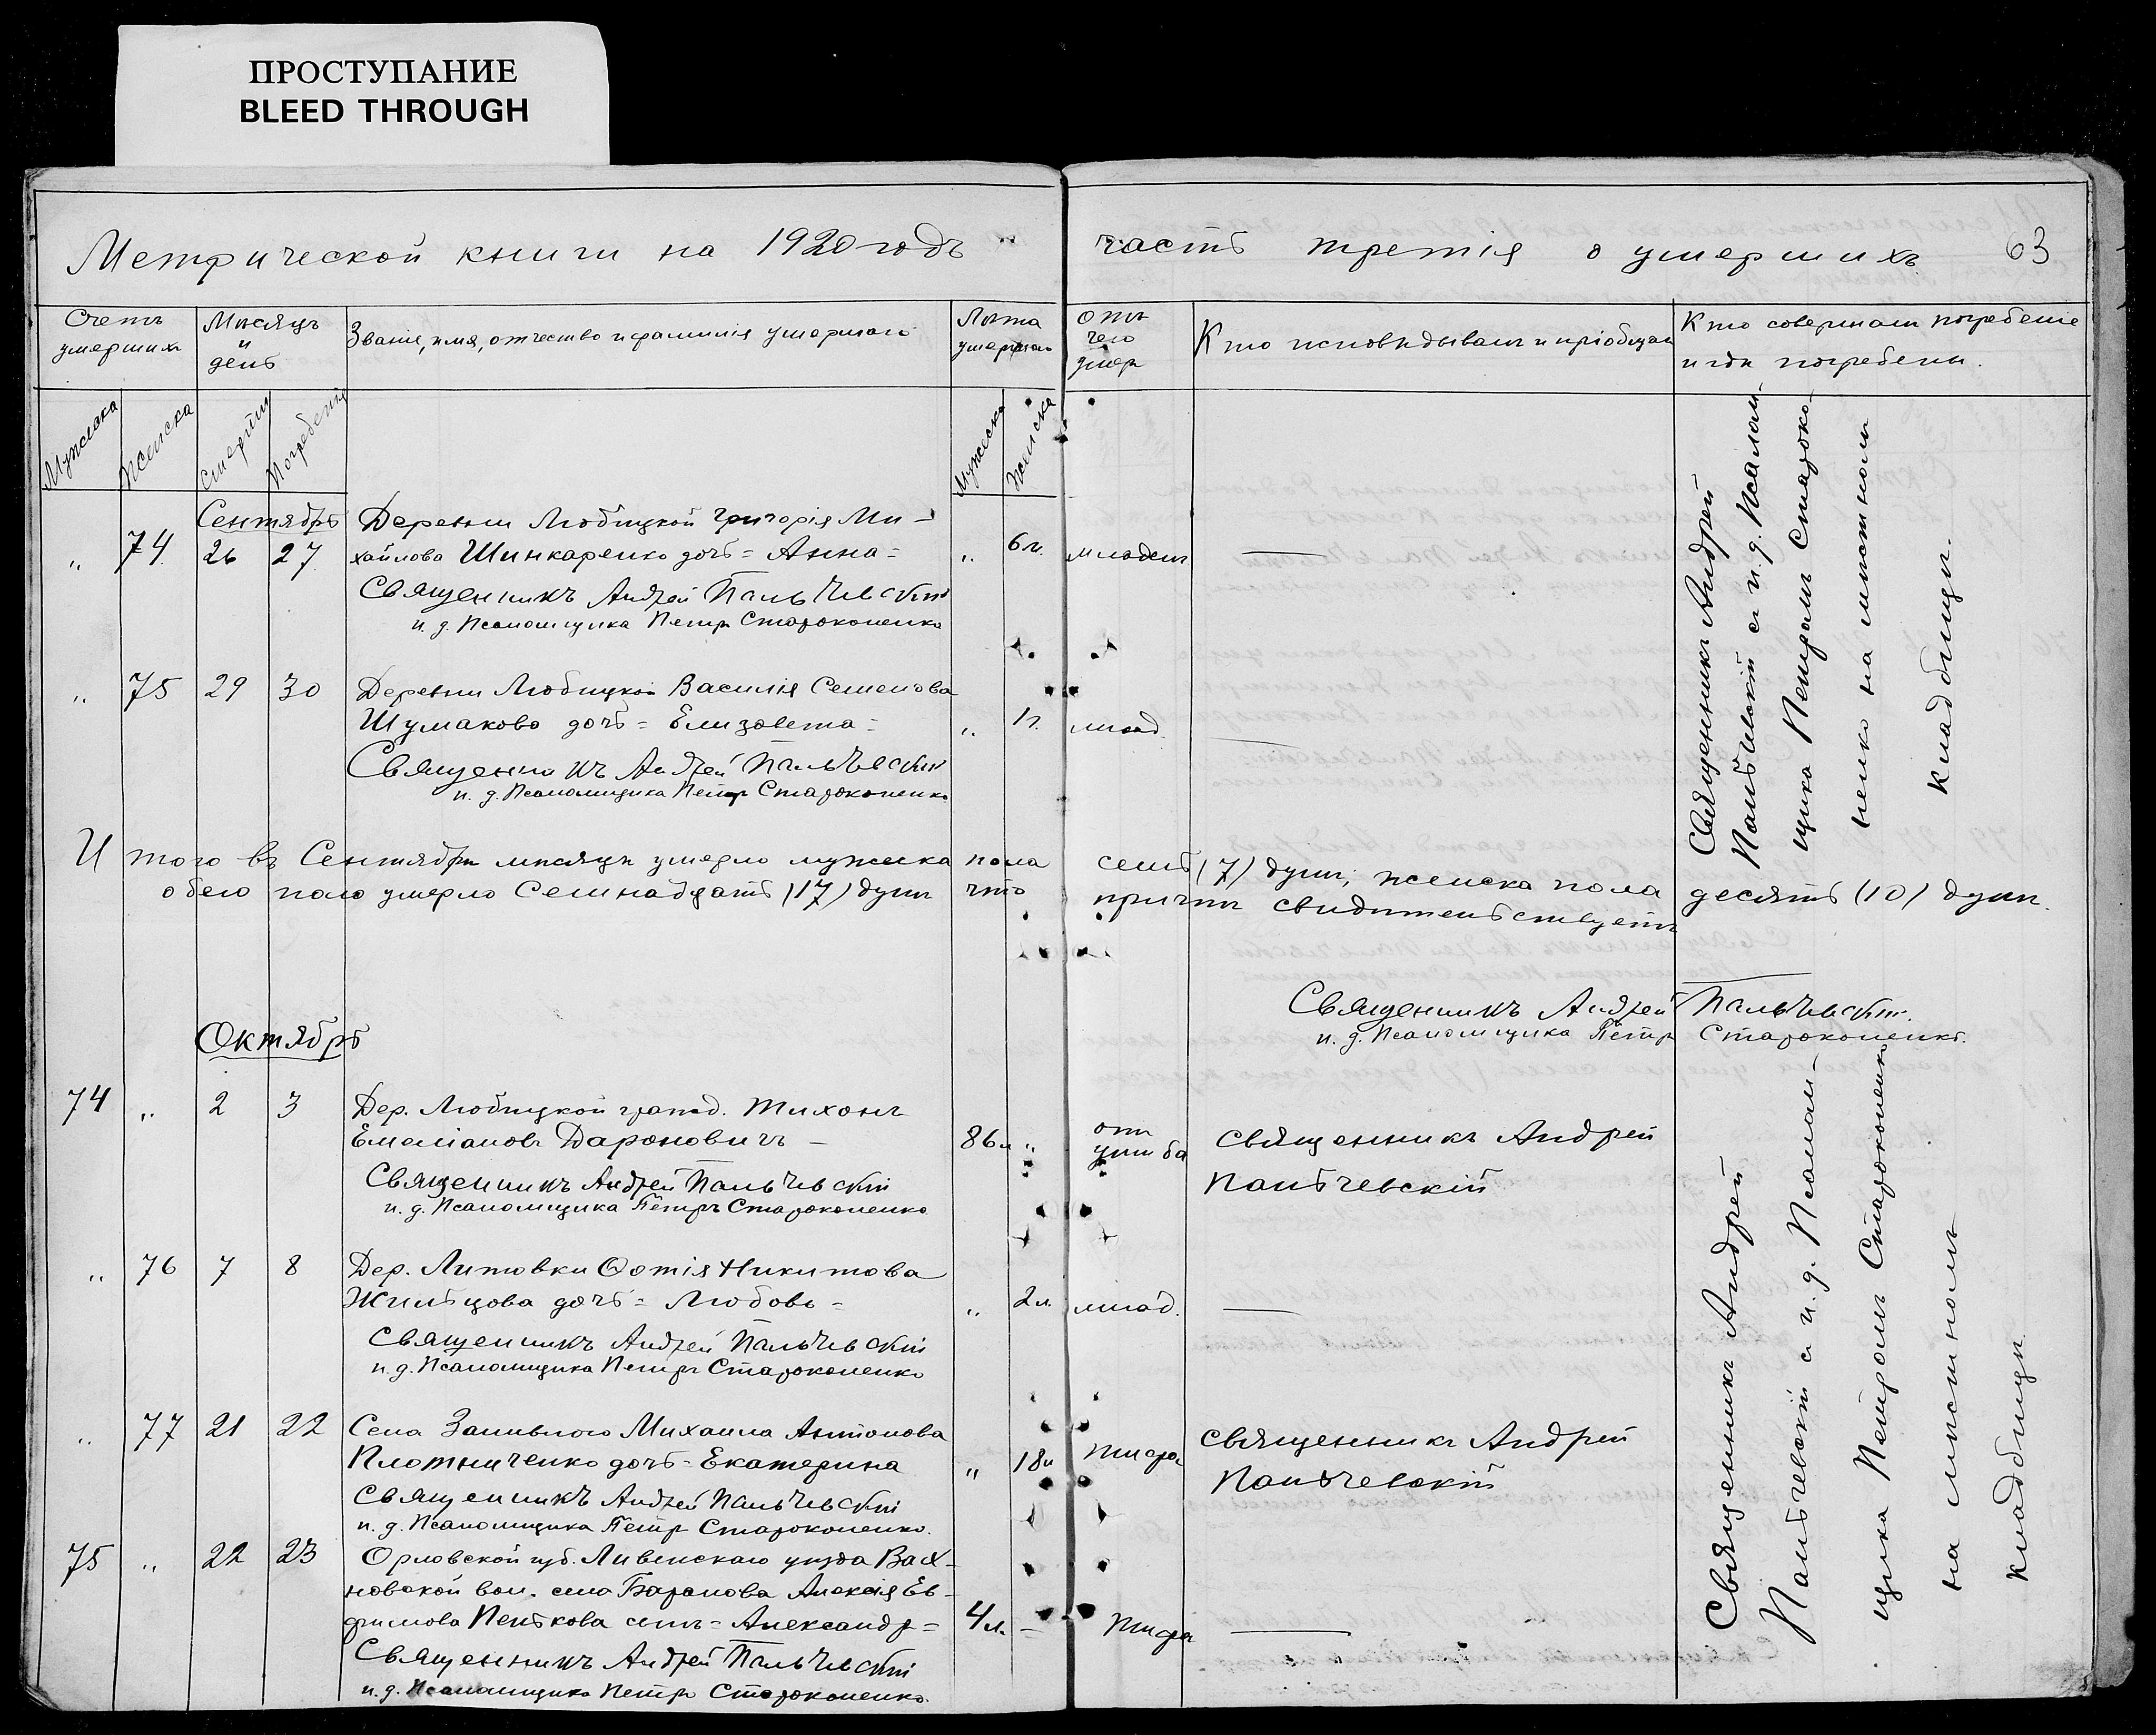 ПРОСТУПАНИЕ
BLEED THROUGH
Метрической книги на 1920 годъ часть третія о умершихъ 63
Счетъ умершихъ
Мѣсяцъ и день
Званіе, имя, отчество и фамилія умершаго
Лѣта умершаго
Отъ чего умеръ
Кто исповѣдывалъ и пріобщалъ
Кто совершалъ погребеніе и гдѣ погребены.
Мужеска Женска Смерти Погребенія Мужеска Женска
Сентябрь Деревни Любицкой Григорія Ми-
„ 74. 26 27. хайлова Шинкаренко дочь = Анна = „ 6 м. младен. —
Священникъ Андрей Пальчевскій
и. д. Псаломщика Петръ Староконенко
„ 75 29 30 Деревни Любицкой Василія Семенова
Шумаково дочь = Елизавета = „ 1 г. млад. —
Священникъ Андрей Пальчевскій
и. д. Псаломщика Петръ Староконенко
Священникъ Андрей
Пальчевскій съ и. д. Псалом-
щика Петромъ Староко-
ненко на мѣстномъ
кладбищѣ.
Итого въ Сентябрѣ мѣсяцѣ умерло мужеска пола семь (7) душъ, женска пола десять (10) душъ.
обего поло умерло Семнадцать (17) душъ что причтъ свидѣтельствуетъ
Священникъ Андрей Пальчевскій.
и. д. Псаломщика Петръ Староконенко.
Октябрь
74 „ 2 3 Дер. Любицкой гражд. Тихонъ
Емеліановъ Дароновичъ — 86 л. „ отъ ушиба Священникъ Андрей
Пальчевскій
Священникъ Андрей Пальчевскій
и. д. Псаломщика Петръ Староконенко
„ 76 7 8 Дер. Литовки Фотія Никитова
Жильцова дочь = Любовь = „ 2 л. млад. —
Священникъ Андрей Пальчевскій
и. д. Псаломщика Петръ Староконенко
„ 77 21 22 Села Заливного Михаила Антонова
Плотниченко дочь = Екатерина „ 18 л. тифа Священникъ Андрей
Пальчевскій
Священникъ Андрей Пальчевскій
и. д. Псаломщика Петръ Староконенко.
75 „ 22 23 Орловской губ. Ливенскаго уѣзда Вах-
новской вол. села Баранова Алексія Ев-
фимова Пенькова сынъ = Александр = 4 л. — тифа —
Священникъ Андрей Пальчевскій
и. д. Псаломщика Петръ Староконенко.
Священникъ Андрей
Пальчевскій съ и. д. Псалом-
щика Петромъ Староконенко
на мѣстномъ
кладбищѣ.